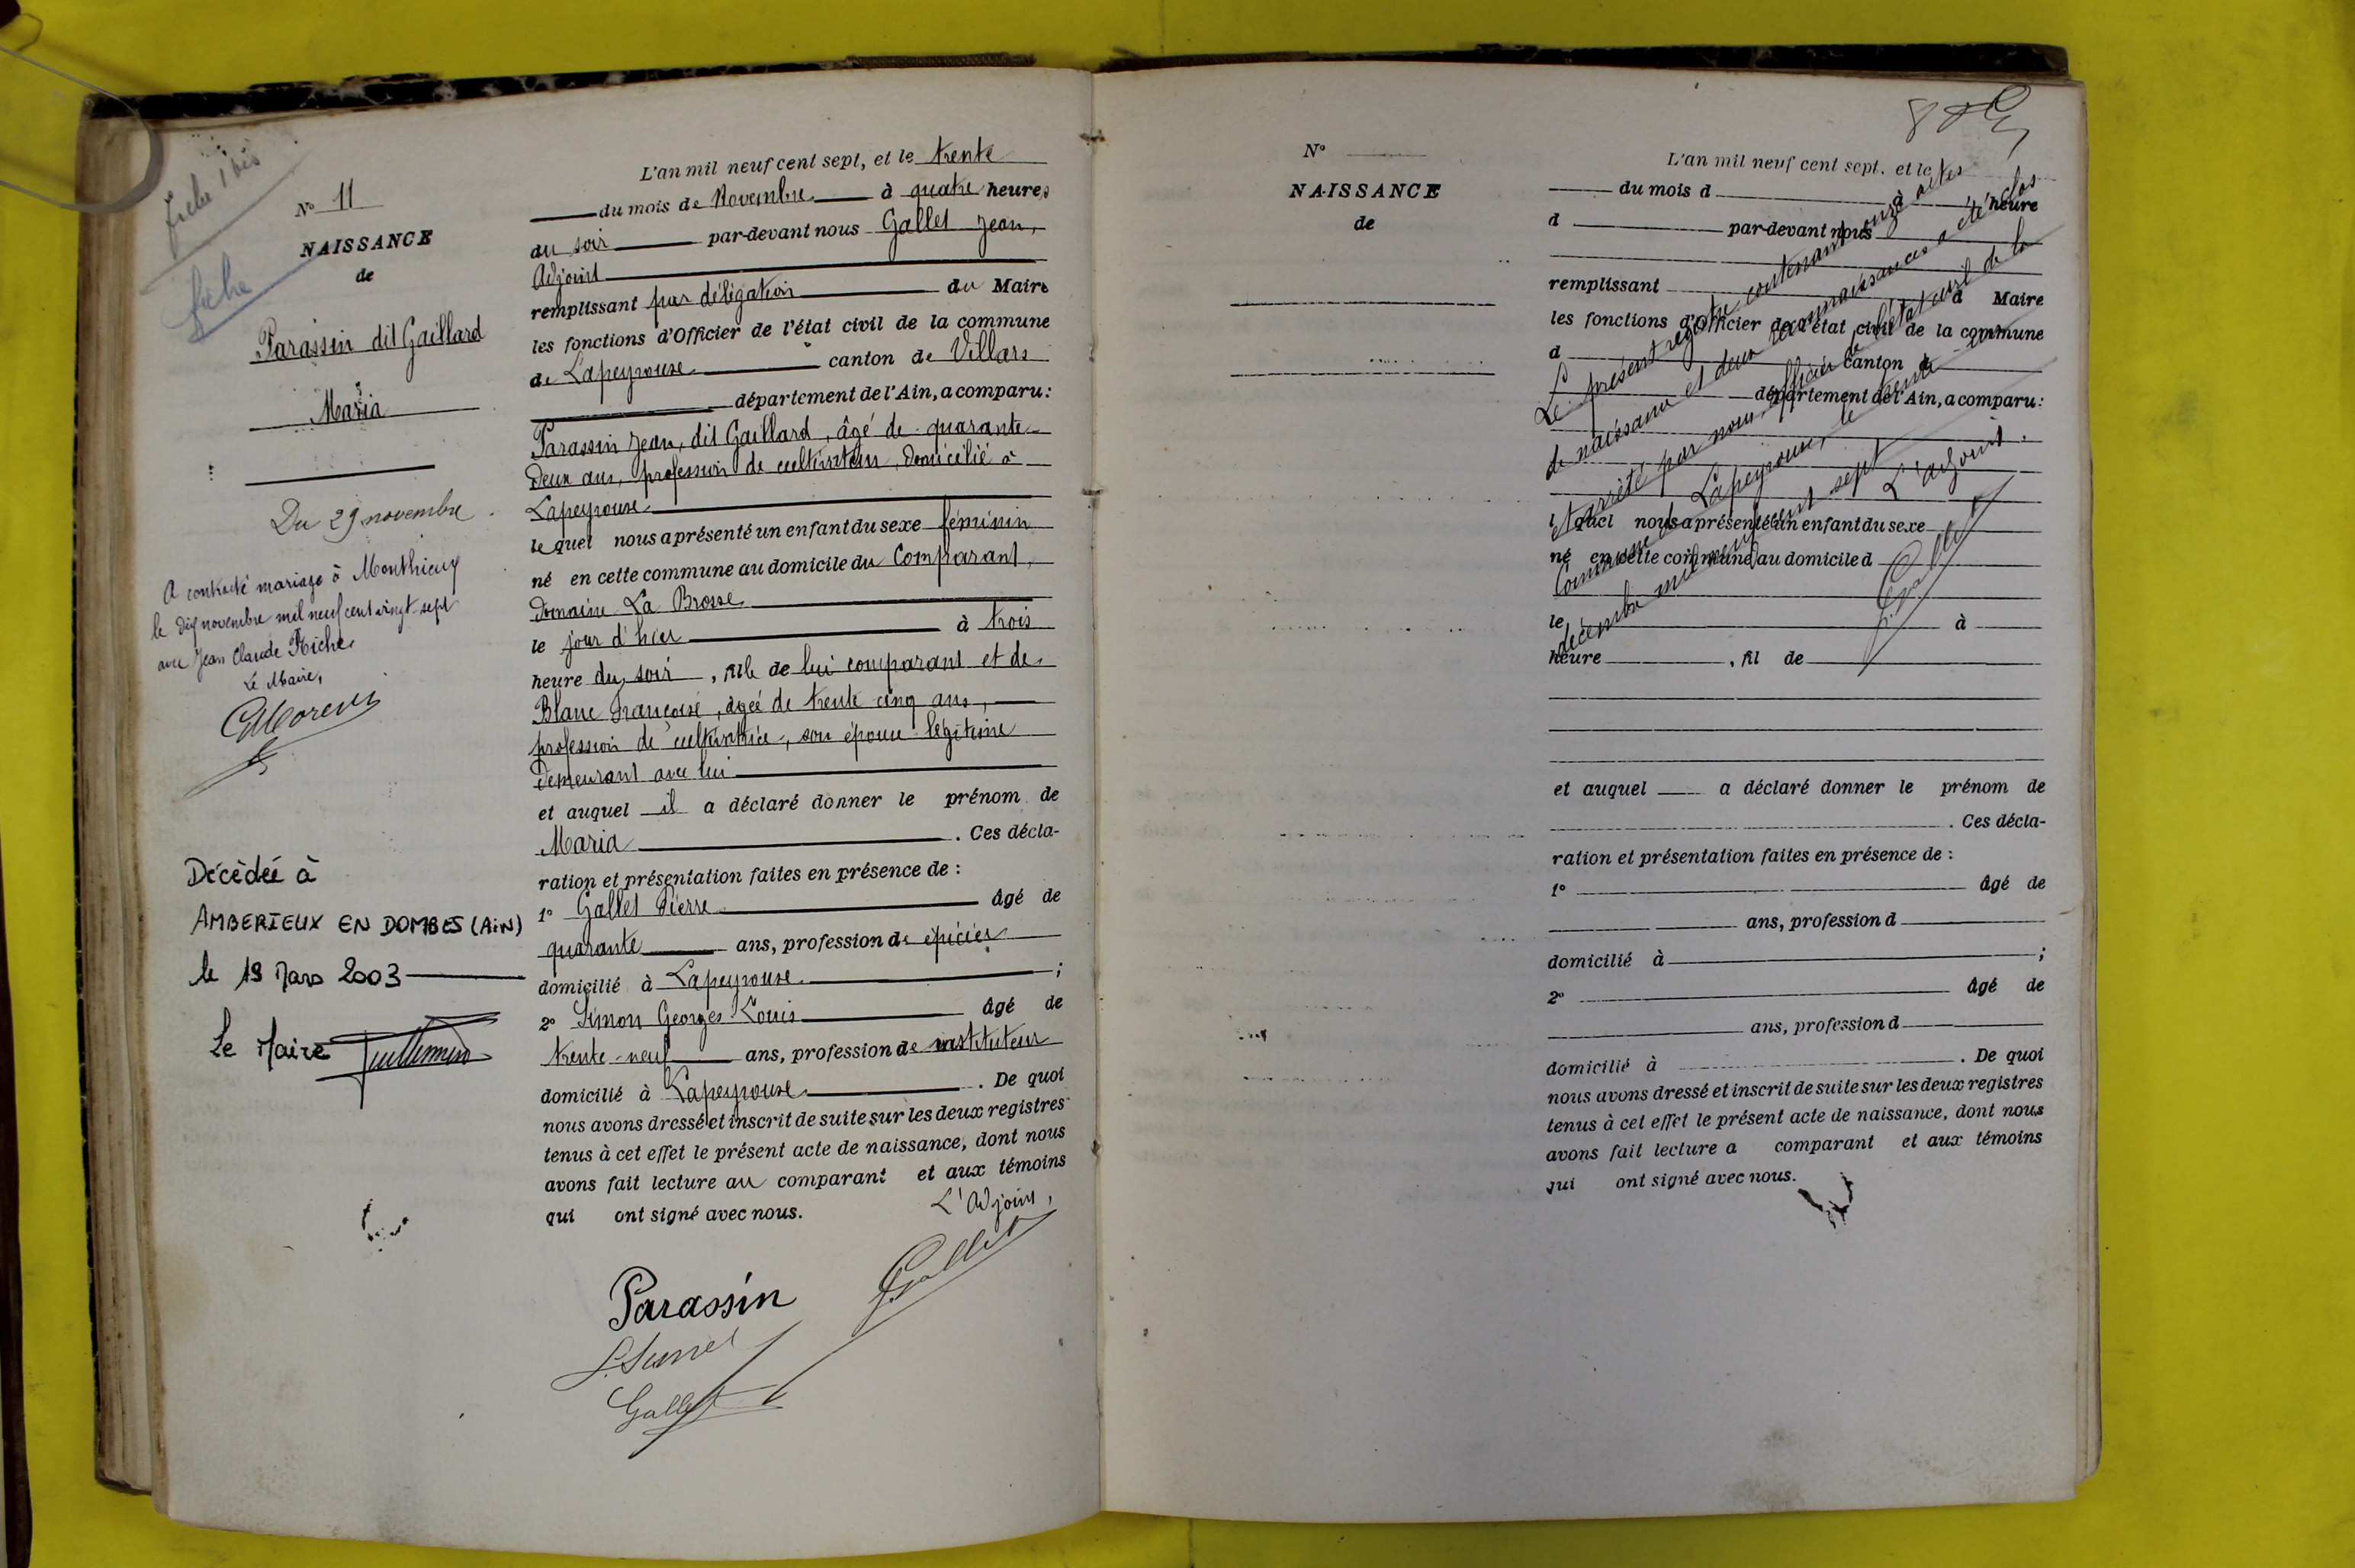 fiche 1 bis
fiche
N° 11
NAISSANCE
de
Parassin dit Gaillard
Maria
Du 29 novembre
A contracté mariage à Monthieux
le dix novembre mil neuf cent vingt sept
avec Jean Claude Riche
Le Maire,
Décédée à
AMBERIEUX EN DOMBES (AiN)
le 19 Mars 2003
Le Maire
L'an mil neuf cent sept, et le trente
du mois de Novembre à quatre heures
du soir par-devant nous Gallet Jean,
Adjoint
remplissant par délégation du Maire
les fonctions d'Officier de l'état civil de la commune
de Lapeyrouse canton de Villars
département de l'Ain, a comparu:
Parassin Jean, dit Gaillard, âgé de quarante-
deux ans, profession de cultivateur, domicilié à
Lapeyrouse
lequel nous a présenté un enfant du sexe féminin
né en cette commune au domicile du Comparant,
Domaine La Brosse
le jour d'hier à trois
heure du soir, fille de lui comparant et de
Blanc Françoise, âgée de trente cinq ans,
profession de cultivatrice, son épouse légitime
demeurant avec lui
et auquel il a déclaré donner le prénom de
Maria. Ces décla-
ration et présentation faites en présence de :
1° Gallet Pierre âgé de
quarante ans, profession de épicier
domicilié à Lapeyrouse ;
2° Simon Georges Louis âgé de
trente-neuf ans, profession de instituteur
domicilié à Lapeyrouse. De quoi
nous avons dressé et inscrit de suite sur les deux registres
tenus à cet effet le présent acte de naissance, dont nous
avons fait lecture au comparant et aux témoins
qui ont signé avec nous.
L'Adjoint,
Parassin
Gallet
Gallet
N°
NAISSANCE
de
L'an mil neuf cent sept. et le
du mois d à heure
d par-devant nous
remplissant d Maire
les fonctions d'Officier de l'état civil de la commune
d canton d
département de l'Ain, a comparu:
l quel nous a présenté un enfant du sexe
né en cette commune au domicile d
le à
heure , fil de
et auquel a déclaré donner le prénom de
. Ces décla-
ration et présentation faites en présence de :
1° âgé de
ans, profession d
domicilié à ;
2° âgé de
ans, profession d
domicilié à . De quoi
nous avons dressé et inscrit de suite sur les deux registres
tenus à cet effet le présent acte de naissance, dont nous
avons fait lecture a comparant et aux témoins
qui ont signé avec nous.
Le présent registre contenant onze actes
de naissance et deux reconnaissances a été clos
et arrêté par nous, officier de l'état civil de la
Commune de Lapeyrouse, le trente
décembre mil neuf cent sept
L'adjoint.
Gallet